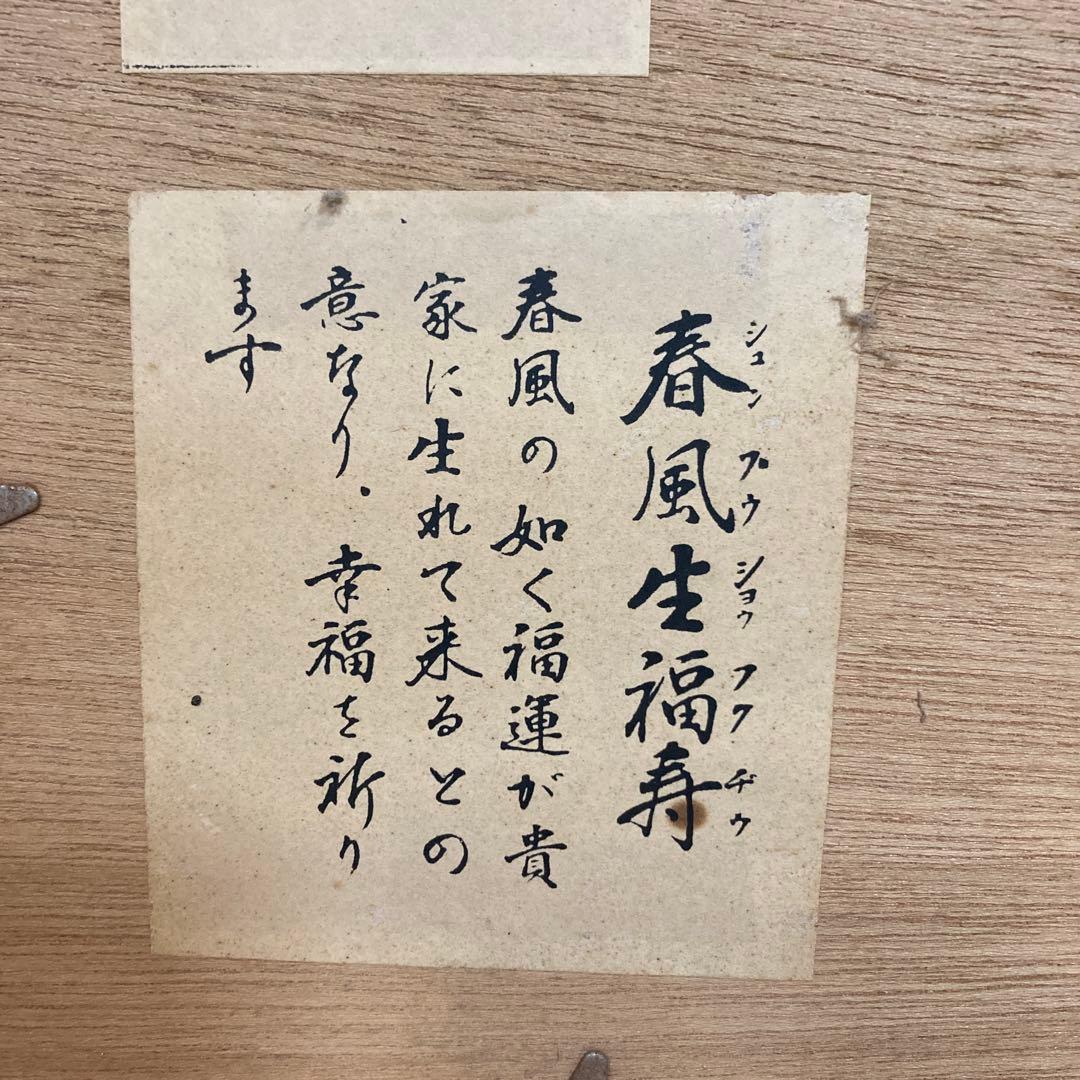 春風生福寿
シュンプウショウフクヂウ
春風の如く福運が貴
家に生れて来るとの
意なり. 幸福を祈り
ます